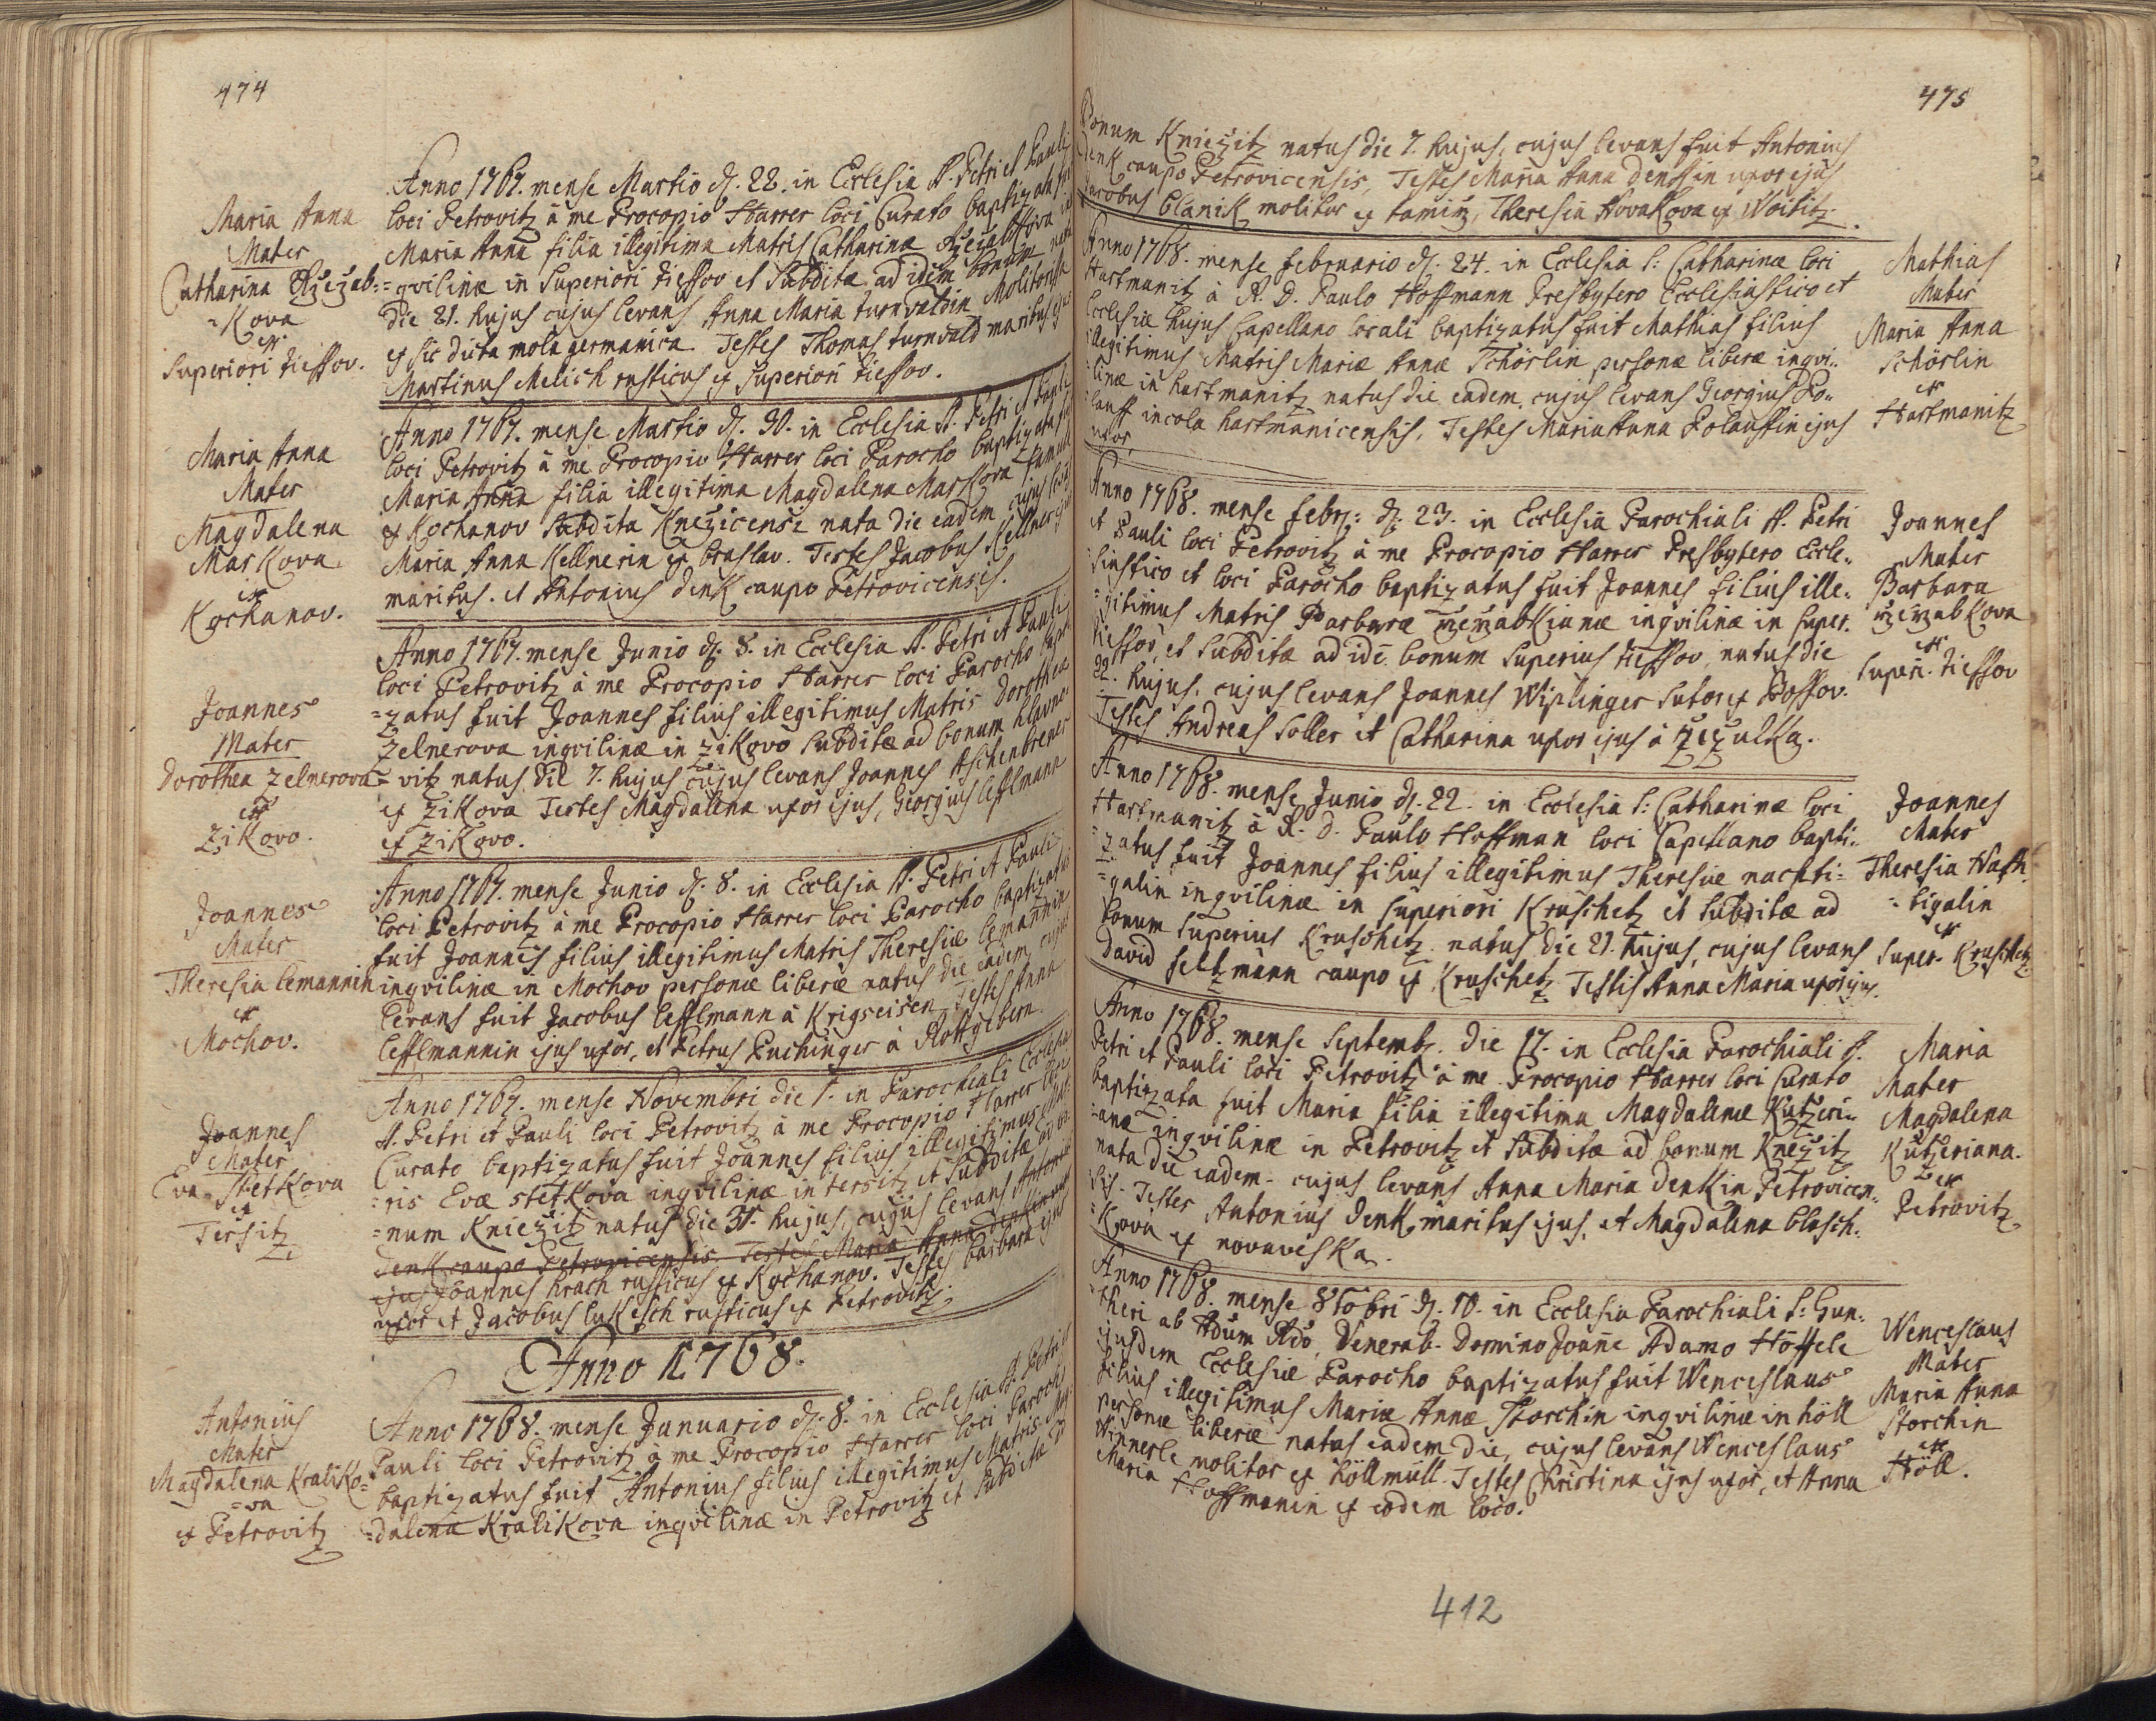 474
Maria Anna
Mater
Catharina
=Kova
ex
Superiori tiessov.
Anno 1767. mense Martio d. 22. in Ecclesia SS. Petri et Pauli
loci Petrovitz à me Procopio Harrer loci Curato baptizata
Maria Anna filia illegitima Matris Catharinæ
=qvilinæ in Superiori tiessov et Subditæ ad idem bonum nata
die 21. hujus cujus levans Anna Maria turnvaldin Molitorissa
ex sic dicta mola germanica. Testes Thomas turnvald maritus ejus
Martinus Melich rusticus ex superiori tiessov.
Maria Anna
Mater
Magdalena
MarKova
ex
Kochanov.
Anno 1767. mense Martio d. 30. in Ecclesia SS. Petri et Pauli
loci Petrovitz à me Procopio Harrer loci Parocho baptizata
Maria Anna filia illegitima Magdalena MarKova
ex Kochanov Subdita Knezicensi nata die eadem, cujus
Maria Anna Kellnerin ex braslav. Testes Jacobus Kellner ejus
maritus. et Antonius DenK caupo Petrovicensis.
Joannes
Mater
Dorothea Zelnerova
ex
ZiKovo.
Anno 1767. mense Junio d. 8. in Ecclesia SS. Petri et Pauli
loci Petrovitz à me Procopio Harrer loci Parocho bapti
=zatus fuit Joannes filius illegitimus Matris Dorothea
Zelnerova inqvilinæ in ZiKovo Subditæ ad bonum hlavno
=vitz natus die 7. hujus cujus levans Joannes Aschenbrener
ex ZiKova Testes Magdalena uxor ejus, Georgius lesslmann
ex ZiKovo.
Joannes
Mater
Theresia lemannin
ex
Mochov.
Anno 1767. mense Junio d. 8. in Ecclesia SS. Petri et Pauli
loci Petrovitz à me Procopio Harrer loci Parocho baptizatus
fuit Joannes filius illegitimus Matris Theresiæ lemannin
inqvilinæ in Mochov personæ liberæ natus die eadem cujus
levans fuit Jacobus lesslmann à Krigseisen Testes Anna
lesslmannin ejus uxor, et Petrus Puchinger à Rottgebern.
Joannes
Mater
Eva StetKova
ex
Tersitz
Anno 1767. mense Novembri die 1. in Parochiali Ecclesia
SS. Petri et Pauli loci Petrovitz à me Procopio Harrer loci
Curato baptizatus fuit Joannes filius illegitimus Mat
=ris Evæ stetKova inqvilinæ in tersitz et Subditæ ad bo
=num Kniezitz natus die 31. hujus, cujus levans Antonius
DenK caupo Petrovicensis Testes Maria Anna
ejus Joannes hrach rusticus ex Kochanov. Testes barbara ejus
uxor et Jacobus luKesch rusticus ex Petrovitz.
Anno 1768.
Antonius
Mater
Magdalena KraliKo=
=va
ex Petrovitz
Anno 1768. mense Januario d. 8. in Ecclesia SS. Petri et
Pauli loci Petrovitz à me Procopio Harrer loci Parocho
baptizatus fuit Antonius filius illegitimus Matris Mag
=dalena KraliKova inqvilinæ in Petrovitz et Subditæ ad
475
bonum Kniezitz natus die 7. hujus, cujus levans fuit Antonius
DenK caupo Petrovicensis, Testes Maria Anna Denkin uxor ejus
Jacobus blaniK molitor ex tamitz, Theresia NovaKova ex Woititz.
Anno 1768. mense februario d. 24. in Ecclesia S: Catharinæ loci
Hartmanitz à R. D. Paulo Hoffmann Presbytero Ecclesiastico et
Ecclesiæ hujus Capellano locali baptizatus fuit Mathias filius
illegitimus Matris Mariæ Annæ Schörlin personæ liberæ inqvi=
=linæ in hartmanitz natus die eadem. cujus levans Georgius Po=
lauff incola hartmanicensis, Testes Maria Anna Polauffin ejus
uxor
Mathias
Mater
Maria Anna
Schörlin
ex
Hartmanitz
Anno 1768. mense febr: d: 23. in Ecclesia Parochiali SS. Petri
et Pauli loci Petrovitz à me Procopio Harrer Presbytero Eccle=
siastico et loci Parocho baptizatus fuit Joannes filius ille=
=gitimus Matris Barbaræ inqvilinæ in super.
tiessov, et Subditæ ad idē bonum Superius tiessov, natus die
22. hujus. cujus levans Joannes Wiplinger Sutor ex Possov.
Testes Andreas Soller et Catharina uxor ejus à
Joannes
Mater
Barbara
ex
Superi. tiessov
Anno 1768. mense Junio d. 22. in Ecclesia S: Catharinæ loci
Hartmanitz à R. D. Paulo Hoffman loci Capellano bapti=
=zatus fuit Joannes filius illegitimus Theresiæ nachti=
=galin inqvilinæ in superiori Kruschetz et Subditæ ad
bonum Superius Kruschetz natus die 21. hujus, cujus levans
David seltzmann caupo ex Kruschetz Testis Anna Maria uxor ejus.
Joannes
Mater
Theresia Nach
=tigalin
ex
Super. Kruschetz
Anno 1768. mense Septemb. die 17. in Ecclesia Parochiali S.
Petri et Pauli loci Petrovitz à me Procopio Harrer loci Curato
baptizata fuit Maria filia illegitima Magdalenæ Kutzeri=
=anæ inqvilinæ in Petrovitz et Subditæ ad bonum Knezitz
nata die eadem. cujus levans Anna Maria DenKin Petrovicen=
sis. Testes Antonius DenK maritus ejus, et Magdalena blasch=
Kova ex novaveska.
Maria
Mater
Magdalena
Kutzeriana.
ex
Petrovitz
Anno 1768. mense 8tobri d. 10. in Ecclesia Parochiali S: Gun=
theri ab Adum Rdo, Venerab. Domino Joanne Adamo Höffele
ejusdem Ecclesiæ Parocho baptizatus fuit Wenceslaus
filius illegitimus Mariæ Annæ Storchin inqvilinæ in höll
personæ liberæ natus eadem die, cujus levans Wenceslaus
Winnerle molitor ex höllmüll. Testes Christina ejus uxor, et Anna
Maria Hoffmanin ex eodem loco.
Wenceslaus
Mater
Maria Anna
Storchin
ex
Höll.
412